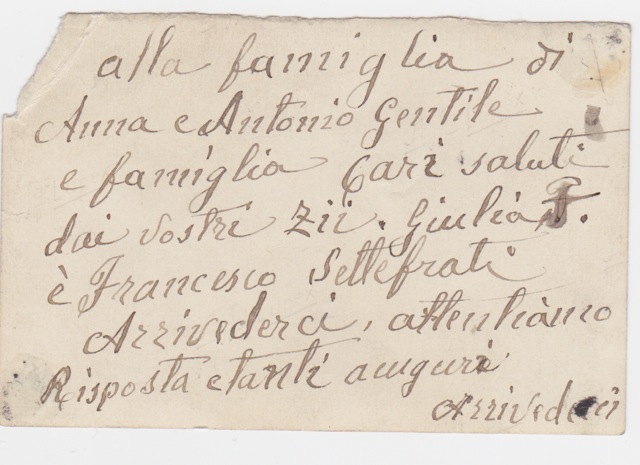 alla famiglia di
Anna e Antonio Gentile
e famiglia Cari saluti
dai vostri Zii. Giulia
è Francesco Settefrati
Arrivederci, attentiàmo
Risposta e tanti auguri
Arrivederci